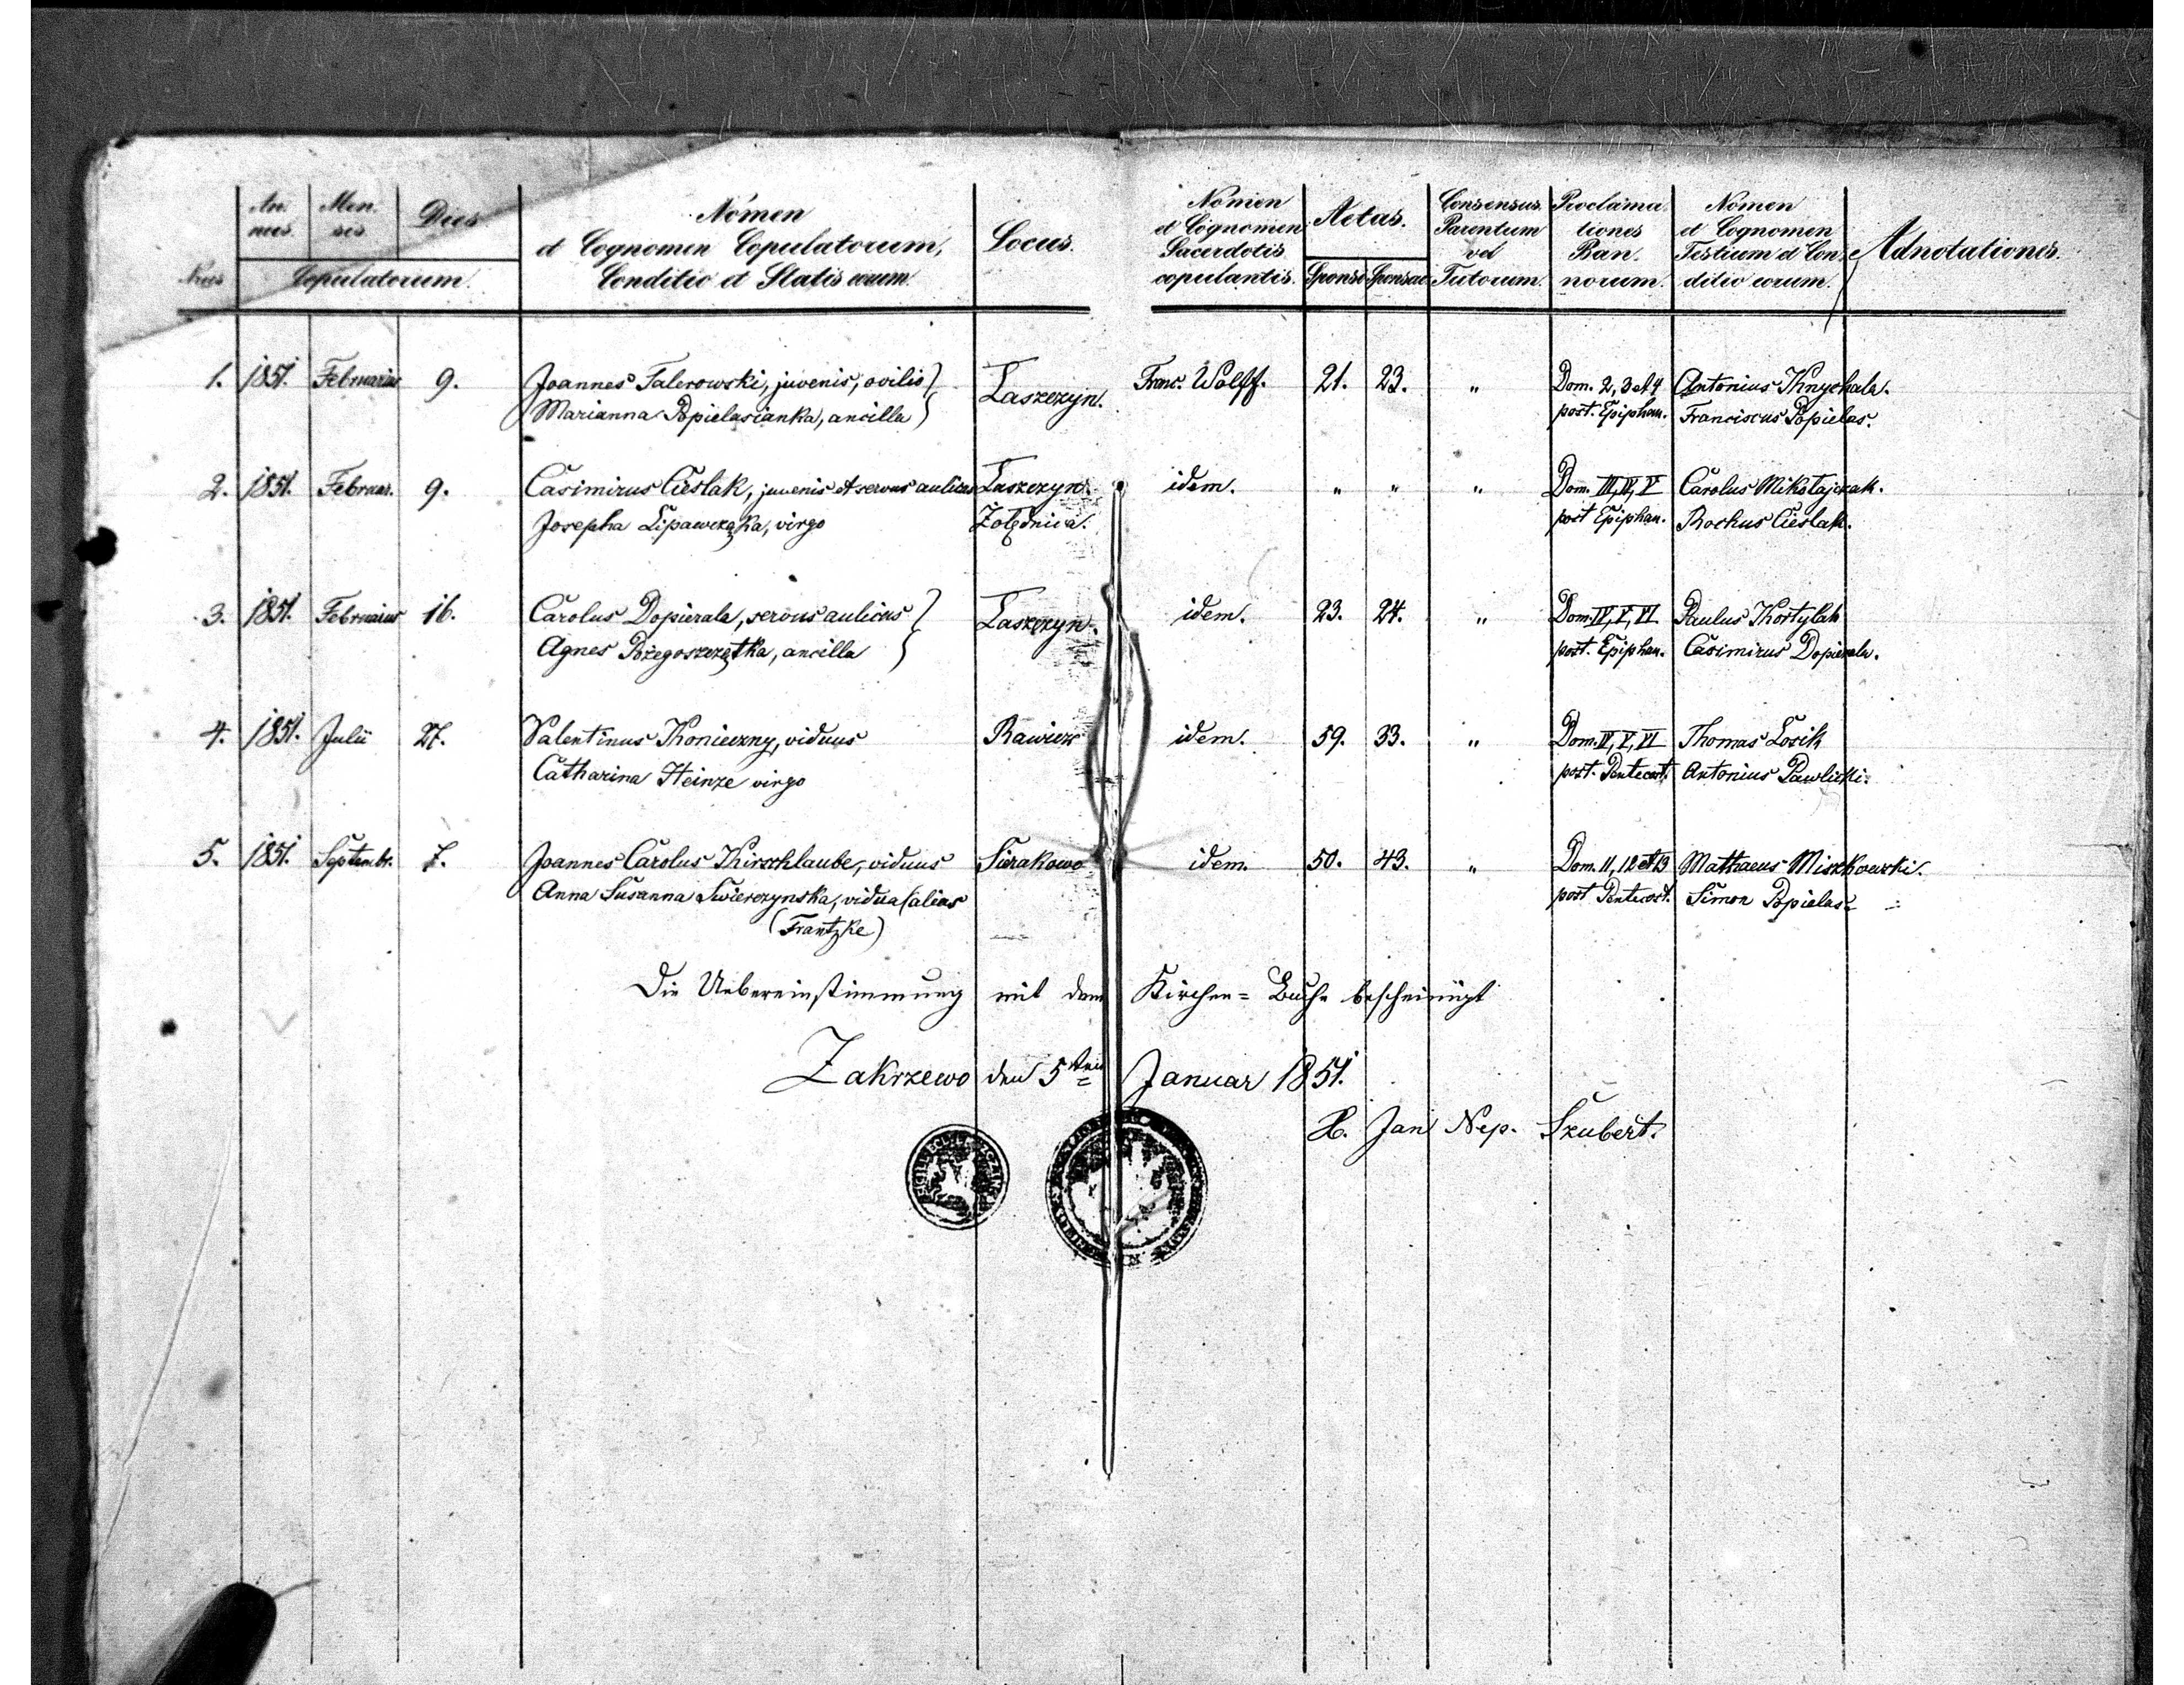 Nrus
An. nus. Men. sis Dies
Copulatorum.
Nomen
et Cognomen Copulatorum,
Conditio et Statis eorum.
Locus.
Nomen
et Cognomen
Sacerdotis
copulantis.
Aetas.
Sponsi Sponsae
Consensus
Parentum
vel
Tutorum.
Proclama
tiones
Ban.
norum.
Nomen
et Cognomen
Testium et Con.
ditio eorum.
Adnotationes.
1. 1851. Februarius 9. Joannes Talerowski, juvenis, ovilio Laszczyn. Franc. Wolff. 21. 23. " Dom. 2, 3 et 4 Antonius Knychala.
Marianna Popielasianka, ancilla post. Epiphan. Franciscus Popielas.
2. 1851. Februar. 9. Casimirus Cieslak, juvenis et servus aulicus Laszczyn. idem. " " " Dom. III, IV, V Carolus Mikołajczak.
Josepha Lipawcząka, virgo Zołędnica. post Epiphan. Rochus Cieslak.
3. 1851. Februarius 16. Carolus Dopierala, servus aulicus Laszczyn. idem. 23. 24. " Dom. IV, V, VI Paulus Kortylak
Agnes Pożegoszczątka, ancilla post. Epiphan. Casimirus Dopierala.
4. 1851. Julii 27. Valentinus Konieczny, viduus Rawicz idem. 59. 33. " Dom. IV, V, VI Thomas Losik
Catharina Heinze virgo post. Pentecost. Antonius Pawlicki.
5. 1851. Septembr. 7. Joannes Carolus Kirschlaube, viduus Sierakowo idem. 50. 43. " Dom. 11, 12 et 13 Mathaeus Miszkowski.
Anna Susanna Swierczynska, vidua (alias post Pentecost. Simon Popielas.
(Frantzke)
Die Uebereinstimmung mit dem Kirchen= Buche bescheinigt
Zakrzewo den 5ten Januar 1851.
X. Jan Nep. Szubert.